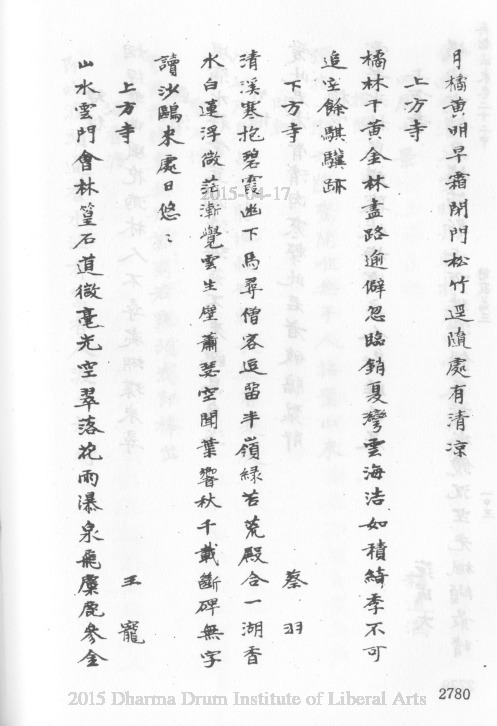 月橘黃明早霜閉門松竹逕隨處有清涼
上方寺
橘林千黃金林盡路逾僻忽臨銷夏灣雲海浩如積綺季不可
追空餘騏驥跡
下方寺 蔡羽
清溪寒抱碧霞幽下馬尋僧客逗留半嶺綠苔荒殿合一湖香
水白蓮浮微茫漸覺雲生壁蕭瑟空聞葉響秋千載斷碑無字
讀沙鷗來處日悠〻
上方寺 王寵
山水雲門會林篁石道微毫光空翠落花雨瀑泉飛麋鹿參金
2015-04-17
2780
2015 Dharma Drum Institute of Liberal Arts